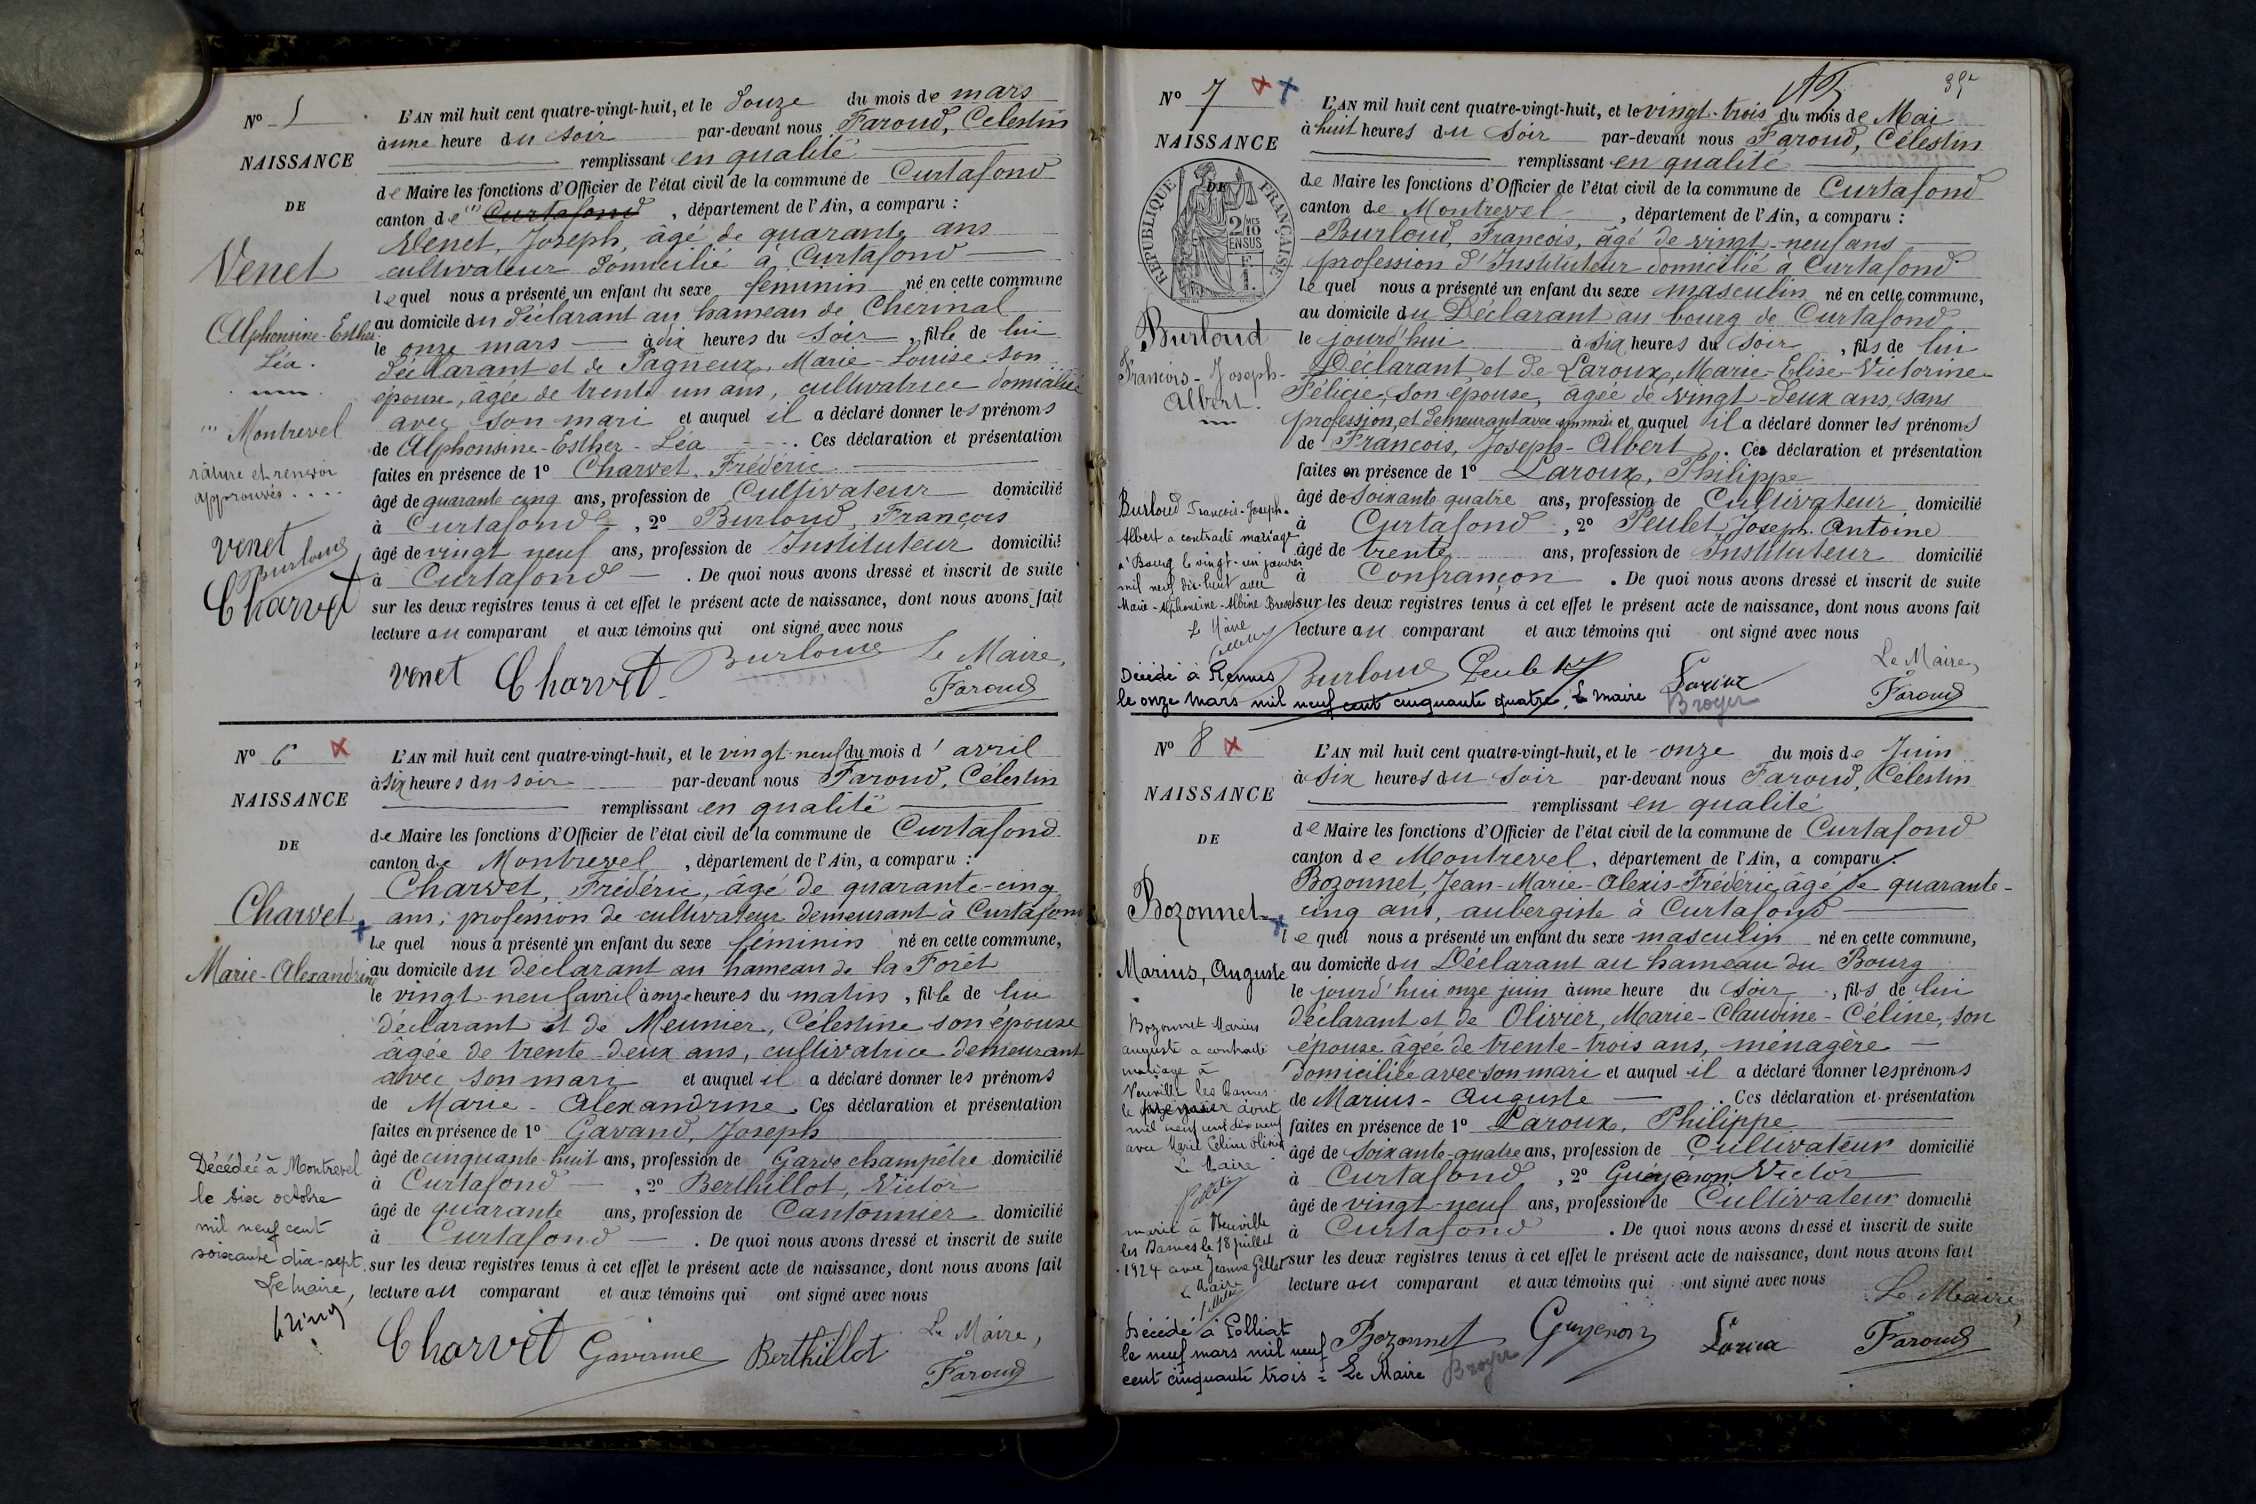 N° 5
NAISSANCE
DE
Venet
Alphonsine-Esther
Léa.
Montrevel
râture et renvoi
approuvés....
Venet
Burloud
Charvet
L'AN mil huit cent quatre-vingt-huit, et le douze du mois de mars
à une heure du soir par-devant nous Faroud, Célestin
remplissant en qualité
de Maire les fonctions d'Officier de l'état civil de la commune de Curtafond
canton de Curtafond, département de l'Ain, a comparu :
Venet, Joseph, âgé de quarante ans
cultivateur domicilié à Curtafond
lequel nous a présenté un enfant du sexe féminin né en cette commune
au domicile du déclarant au hameau de Cherinal
le onze mars à dix heures du soir, fille de lui
déclarant et de Pagneux, Marie-Louise son
épouse, âgée de trente un ans, cultivatrice domiciliée
avec son mari et auquel il a déclaré donner les prénoms
de Alphonsine-Esther-Léa. Ces déclaration et présentation
faites en présence de 1° Charvet, Frédéric
âgé de quarante cinq ans, profession de Cultivateur domicilié
à Curtafond, 2° Burloud, François
âgé de vingt neuf ans, profession de Instituteur domicilié
à Curtafond. De quoi nous avons dressé et inscrit de suite
sur les deux registres tenus à cet effet le présent acte de naissance, dont nous avons fait
lecture au comparant et aux témoins qui ont signé avec nous
Venet Charvet Burloud Le Maire,
Faroud
N° 6
NAISSANCE
DE
Charvet
Marie-Alexandrine
Décédée à Montrevel
le six octobre
mil neuf cent
soixante dix-sept.
Le Maire,
L'AN mil huit cent quatre-vingt-huit, et le vingt-neuf du mois d'avril
à six heures du soir par-devant nous Faroud, Célestin
remplissant en qualité
de Maire les fonctions d'Officier de l'état civil de la commune de Curtafond
canton de Montrevel, département de l'Ain, a comparu :
Charvet, Frédéric, âgé de quarante-cinq
ans, profession de cultivateur demeurant à Curtafond
lequel nous a présenté un enfant du sexe féminin né en cette commune,
au domicile du déclarant au hameau de la Forêt
le vingt-neuf avril à onze heures du matin, fille de lui
déclarant et de Meunier, Célestine son épouse
âgée de trente-deux ans, cultivatrice demeurant
avec son mari et auquel il a déclaré donner les prénoms
de Marie-Alexandrine. Ces déclaration et présentation
faites en présence de 1° Gavand, Joseph
âgé de cinquante-huit ans, profession de Garde champêtre domicilié
à Curtafond, 2° Berthillot, Victor
âgé de quarante ans, profession de Cantonnier domicilié
à Curtafond. De quoi nous avons dressé et inscrit de suite
sur les deux registres tenus à cet effet le présent acte de naissance, dont nous avons fait
lecture au comparant et aux témoins qui ont signé avec nous
Charvet Gavand Berthillot Le Maire,
Faroud
N° 7
NAISSANCE
DE
RÉPUBLIQUE FRANÇAISE
2 MES
10
EN SUS
Burloud
François-Joseph-
Albert.
Burloud François-Joseph-
Albert a contracté mariage
à Bourg le vingt-un janvier
mil neuf dix-huit avec
Marie-Alphonsine-Albine
Le Maire
Décédé à
le onze mars mil neuf cent cinquante quatre, Le maire
Broyer
L'AN mil huit cent quatre-vingt-huit, et le vingt-trois du mois de Mai
à huit heures du soir par-devant nous Faroud, Célestin
remplissant en qualité
de Maire les fonctions d'Officier de l'état civil de la commune de Curtafond
canton de Montrevel, département de l'Ain, a comparu :
Burloud, François, âgé de vingt-neuf ans
profession d'Instituteur domicilié à Curtafond
lequel nous a présenté un enfant du sexe masculin né en cette commune,
au domicile du Déclarant au bourg de Curtafond
le jourd'hui à six heures du soir, fils de lui
Déclarant et de Laroux, Marie-Elise-Victorine
Félicie, son épouse, âgée de vingt-deux ans, sans
profession, et demeurant avec son mari et auquel il a déclaré donner les prénoms
de François, Joseph-Albert. Ces déclaration et présentation
faites en présence de 1° Laroux, Philippe
âgé de Soixante quatre ans, profession de Cultivateur domicilié
à Curtafond, 2° Peulet, Joseph Antoine
âgé de trente ans, profession de Instituteur domicilié
à Confrançon. De quoi nous avons dressé et inscrit de suite
sur les deux registres tenus à cet effet le présent acte de naissance, dont nous avons fait
lecture au comparant et aux témoins qui ont signé avec nous
Burloud Peulet Laroux Le Maire,
Faroud
N° 8
NAISSANCE
DE
Bozonnet
Marius, Auguste
Bozonnet Marius
auguste a contracté
mariage à
Neuville les Dames
le premier août
mil neuf cent dix neuf
avec Marie Céline
Le Maire
marié à Neuville
les Dames le 18 juillet
1924 avec Jeanne Gillet
Le Maire
Décédé à Polliat
le neuf mars mil neuf
cent cinquante trois = Le Maire
Broyer
L'AN mil huit cent quatre-vingt-huit, et le onze du mois de Juin
à six heures du soir par-devant nous Faroud, Célestin
remplissant en qualité
de Maire les fonctions d'Officier de l'état civil de la commune de Curtafond
canton de Montrevel, département de l'Ain, a comparu :
Bozonnet, Jean-Marie-Alexis-Frédéric, âgé de quarante-
cinq ans, aubergiste à Curtafond
lequel nous a présenté un enfant du sexe masculin né en cette commune,
au domicile du Déclarant au hameau du Bourg
le jourd'hui onze juin à une heure du soir, fils de lui
déclarant et de Olivier, Marie-Claudine-Céline, son
épouse âgée de trente-trois ans, ménagère
domiciliée avec son mari et auquel il a déclaré donner les prénoms
de Marius-Auguste. Ces déclaration et présentation
faites en présence de 1° Laroux, Philippe
âgé de Soixante-quatre ans, profession de Cultivateur domicilié
à Curtafond, 2° Guyenon, Victor
âgé de vingt-neuf ans, profession de Cultivateur domicilié
à Curtafond. De quoi nous avons dressé et inscrit de suite
sur les deux registres tenus à cet effet le présent acte de naissance, dont nous avons fait
lecture au comparant et aux témoins qui ont signé avec nous
Bozonnet Guyenon Laroux Le Maire,
Faroud